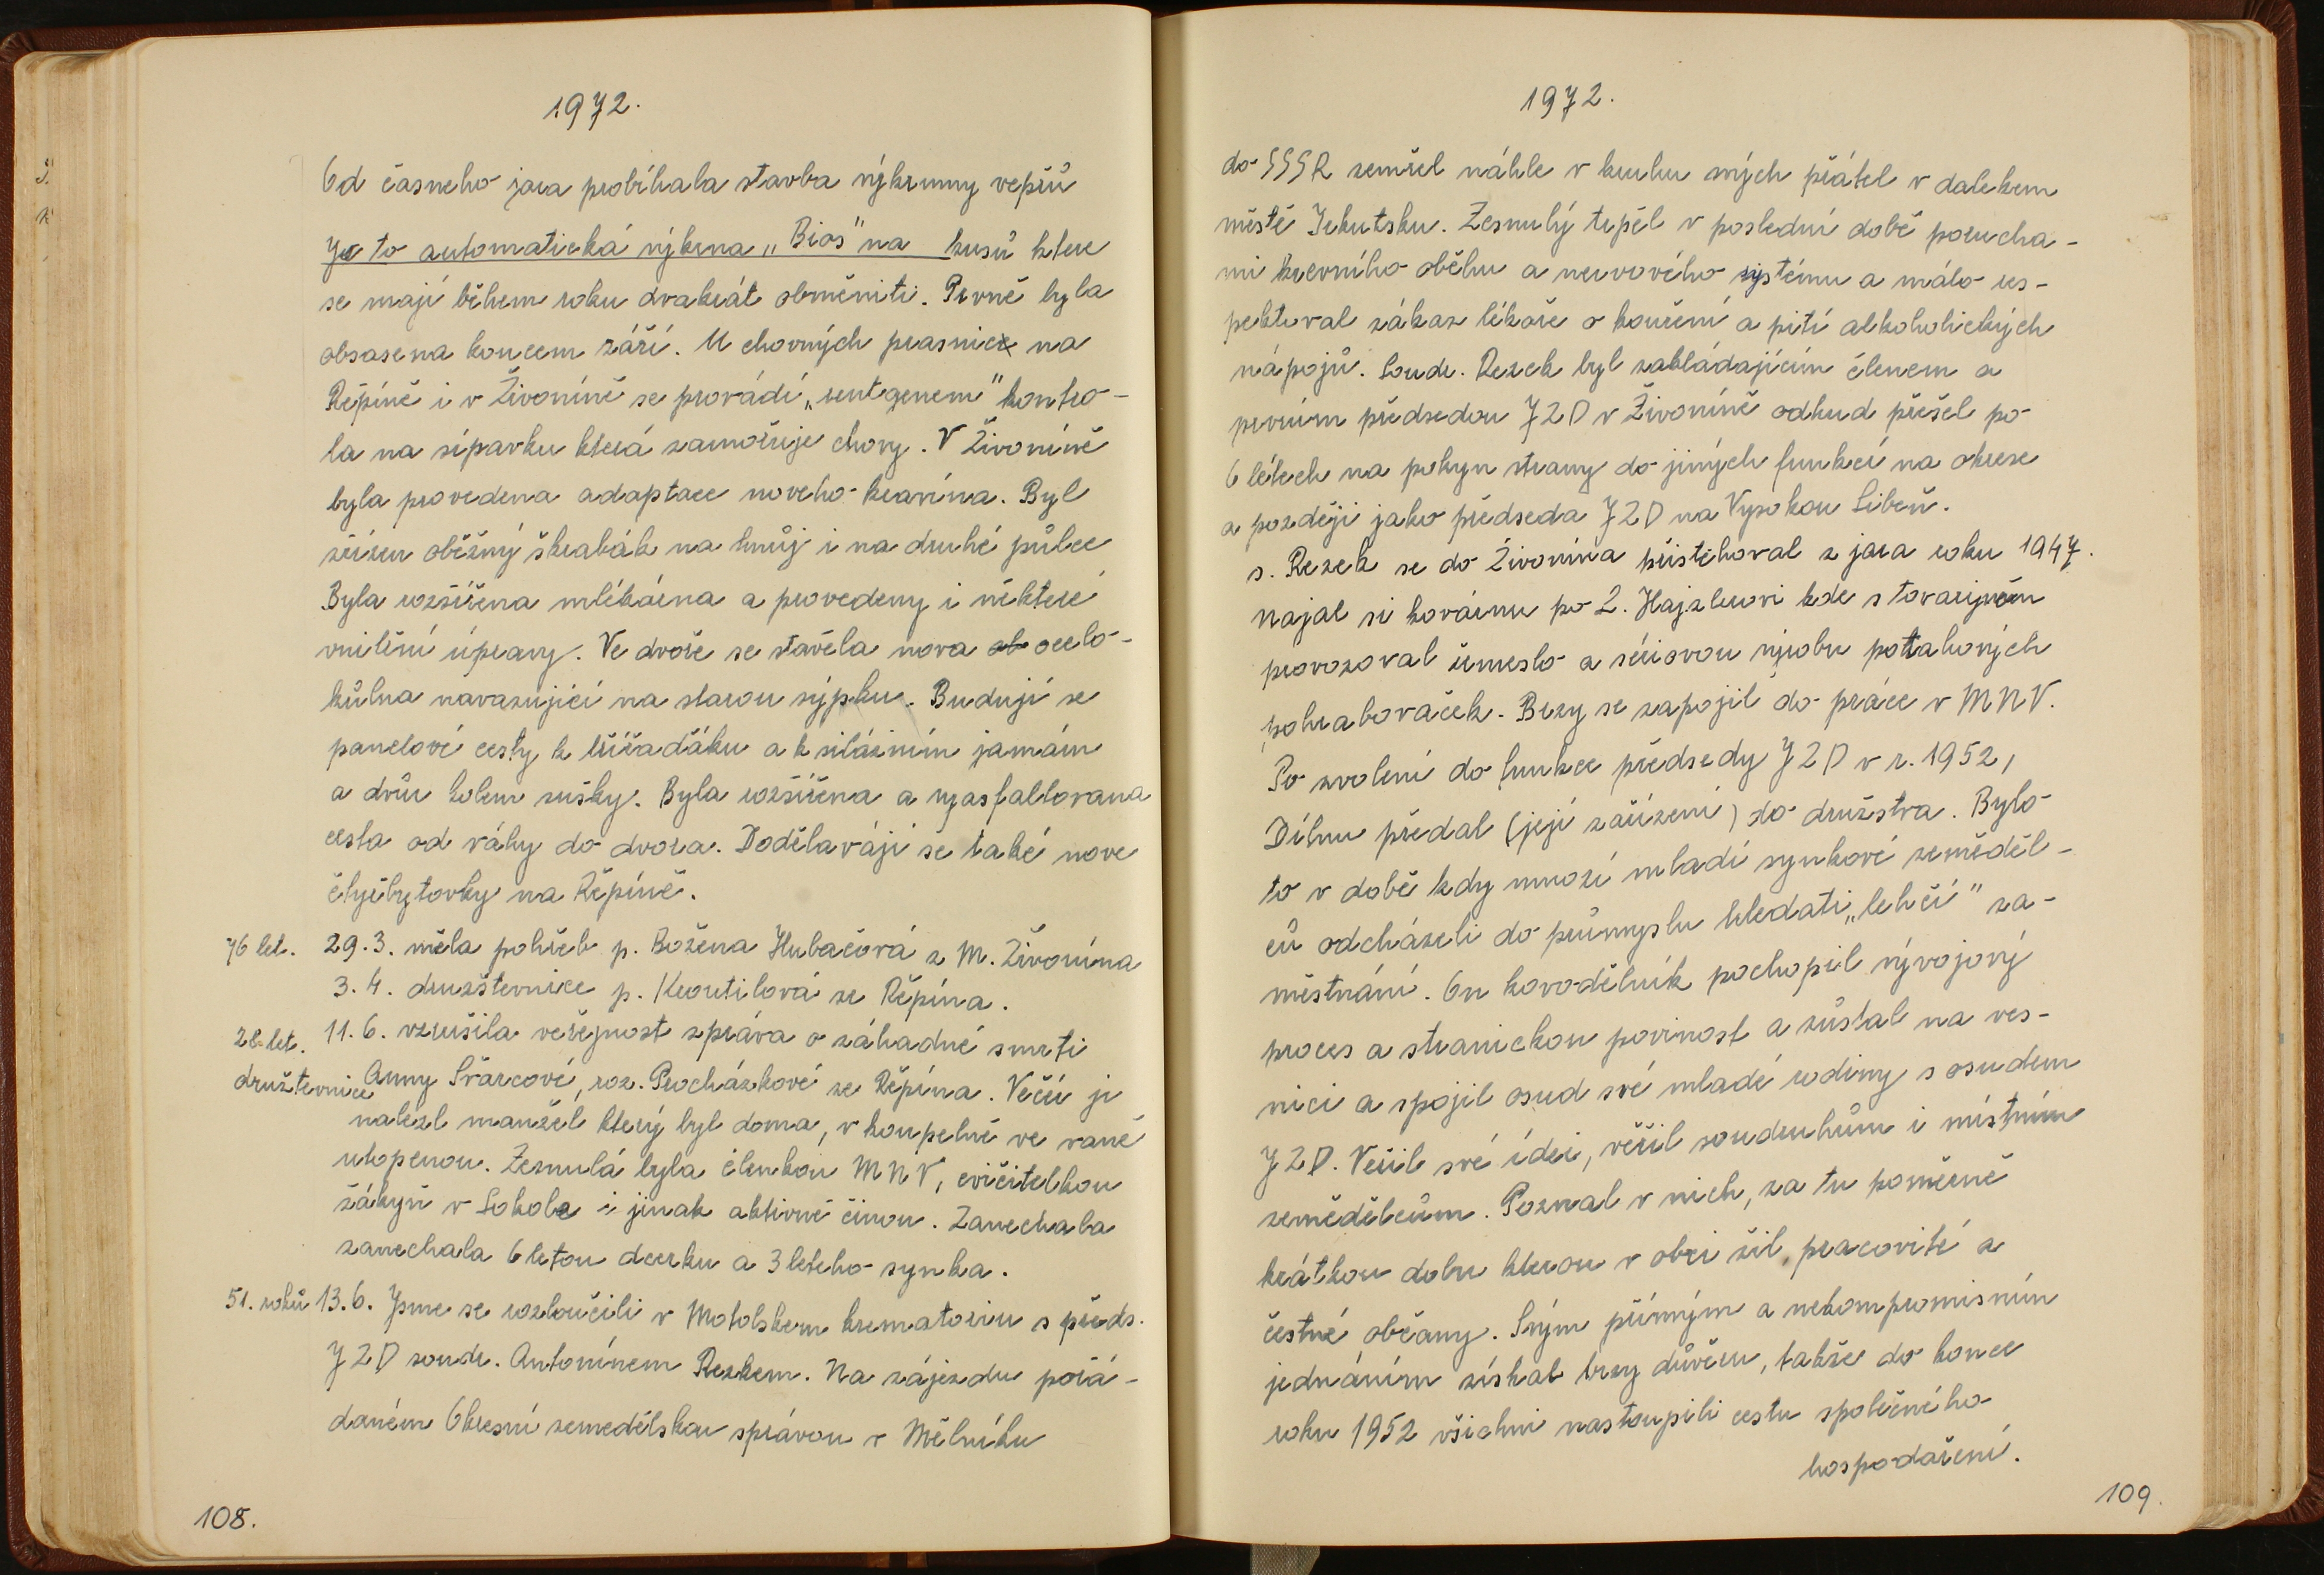 1972.
Od časneho jara probíhala stavba výkrmny vepřů
Je to automatická výkrna „Bios" na kusů ktere
se mají během roku dvakrát obměniti. Prvně byla
obsasena koncem září. U chovných prasnic na
Řepíně i v Živoníně se provádí „rentgenem" kontro-
la na sípavku která zamořuje chovy. V Živoníně
byla provedena adaptace noveho kravína. Byl
zřízen oběžný škrabák na hnůj i na druhé půlce
Byla rozšířena mlékárna a provedeny i některé
vnitřní úpravy. Ve dvoře se stavěla nova ocelo-
kůlna navazující na starou sýpku. Budují se
panelové cesty k tříšaďáku a k silážním jamám
a dvůr kolem sušky. Byla rozšířena a vyasfaltovana
cesta od váhy do dvora. Dodělavájí se také nove
čtyřbytovky na Řepíně.
76 let. 29.3. měla pohřeb p. Božena Hubačová z M. Živonína
3.4. družštevnice p. Kroutilová ze Řepína.
28 let. 11.6. vzrušila veřejnost zpráva o záhadné smrti
družstevnice Anny Švarcové, roz. Procházkové ze Řepína. Večír ji
nalezl manžel který byl doma, v koupelně ve vaně
utopenou. Zesnulá byla členkou MNV, cvičitelkou
žákyň v Sokole i jinak aktivně činou. Zanechala
zanechala 6 letou dcerku a 3 leteho synka.
51. roků 13.6. Jsme se rozloučili v Motolskem krematoriu s předs.
JZD soudr. Antonínem Rezkem. Na zájezdu pořá-
daném Okresní zemedělskou správou v Mělníku
108.
1972.
do SSSR zemřel náhle v kruhu svých přátel v dalekem
městě Irkutsku. Zesnulý trpěl v poslední době porucha-
mi krevního oběhu a nervového systému a málo res-
pektoval zákaz lékaře o kouření a pití alkoholických
nápojů. Soudr. Rezek byl zakládajícím členem a
prvním předsedou JZD v Živoníně odkud přešel po
6 létech na pokyn strany do jiných funkcí na okrese
a později jako předseda JZD na Vysokou Libeň.
s. Rezek se do Živonína přistěhoval z jara roku 1947.
najal si kovárnu po L. Hajzlerovi kde s tovaryšem
provozoval řemeslo a sériovou výrobu potahových
pohrabovaček. Brzy se zapojil do práce v MNV.
Po zvolení do funkce předsedy JZD v r. 1952,
Dílnu předal (její zařízení) do družstva. Bylo
to v době kdy mnozí mladí synkové zeměděl-
ců odcházeli do průmyslu hledati „lehčí" za-
městnání. On kovodělník pochopil vývojový
proces a stranickou povinost a zůstal na ves-
nici a spojil osud své mladé rodiny s osudem
JZD. Veřil své ídei, věřil soudruhům i místním
zemědělcům. Poznal v nich, za tu poměrně
krátkou dobu kterou v obci žil, pracovité a
čestné občany. Svým přímým a nekompromisním
jednáním získal brzy důvěru, takže do konce
roku 1952 všichni nastoupili cestu společného
hospodaření.
109.